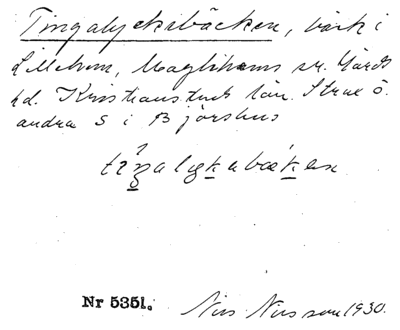 Tingalyckebäcken, bäck i
Lillehem, Maglehems sn. Gärds
hd. Kristianstads län. Strax ö.
andra S i Björshus
tiŋalykabæken
Nr 5351.
Nils Nilsson 1930.